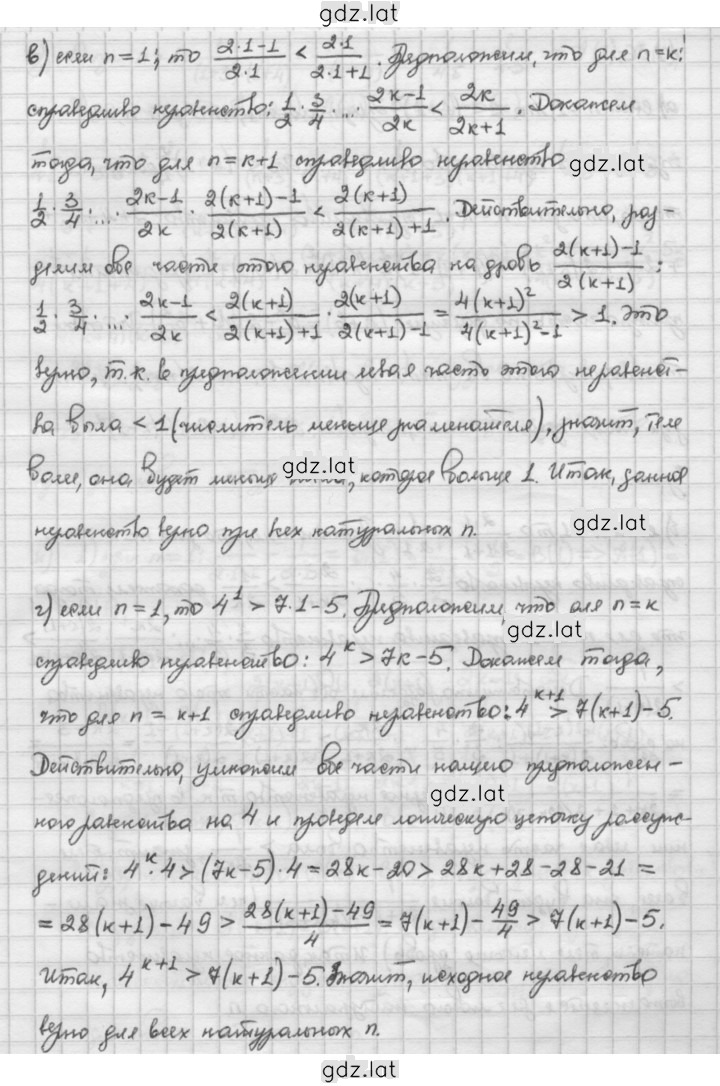 gdz.lat
в) если n=1; то \frac{2·1-1}{2·1} < \frac{2·1}{2·1+1}. Предположим, что для n=к:
справедливо неравенство: \frac{1}{2}·\frac{3}{4}·...·\frac{2к-1}{2к} < \frac{2к}{2к+1}. Докажем
gdz.lat
тогда, что для n=к+1 справедливо неравенство
\frac{1}{2}·\frac{3}{4}·...·\frac{2к-1}{2к}·\frac{2(к+1)-1}{2(к+1)} < \frac{2(к+1)}{2(к+1)+1}. Действительно, раз-
gdz.lat
делим обе части этого неравенства на дробь \frac{2(к+1)-1}{2(к+1)}:
\frac{1}{2}·\frac{3}{4}·...·\frac{2к-1}{2к} < \frac{2(к+1)}{2(к+1)+1}·\frac{2(к+1)}{2(к+1)-1} = \frac{4(к+1)²}{4(к+1)²-1} > 1. Это
верно, т.к. в предположении левая часть этого неравенст-
ва была < 1 (числитель меньше знаменателя), значит, тем
более, она будет меньше, которое больше 1. Итак, данное
gdz.lat
неравенство верно при всех натуральных n.
gdz.lat
г) если n=1, то 4¹ > 7·1-5. Предположим, что для n=к
gdz.lat
справедливо неравенство: 4^к > 7к-5. Докажем тогда,
что для n=к+1 справедливо неравенство: 4^{к+1} > 7(к+1)-5.
gdz.lat
Действительно, умножим обе части нашего предположен-
gdz.lat
ного равенства на 4 и проведем логическую цепочку рассуж-
дений: 4^к·4 > (7к-5)·4 = 28к-20 > 28к+28-28-21 =
= 28(к+1)-49 > \frac{28(к+1)-49}{4} = 7(к+1)-\frac{49}{4} > 7(к+1)-5.
gdz.lat
Итак, 4^{к+1} > 7(к+1)-5. Значит, исходное неравенство
верно для всех натуральных n.
gdz.lat